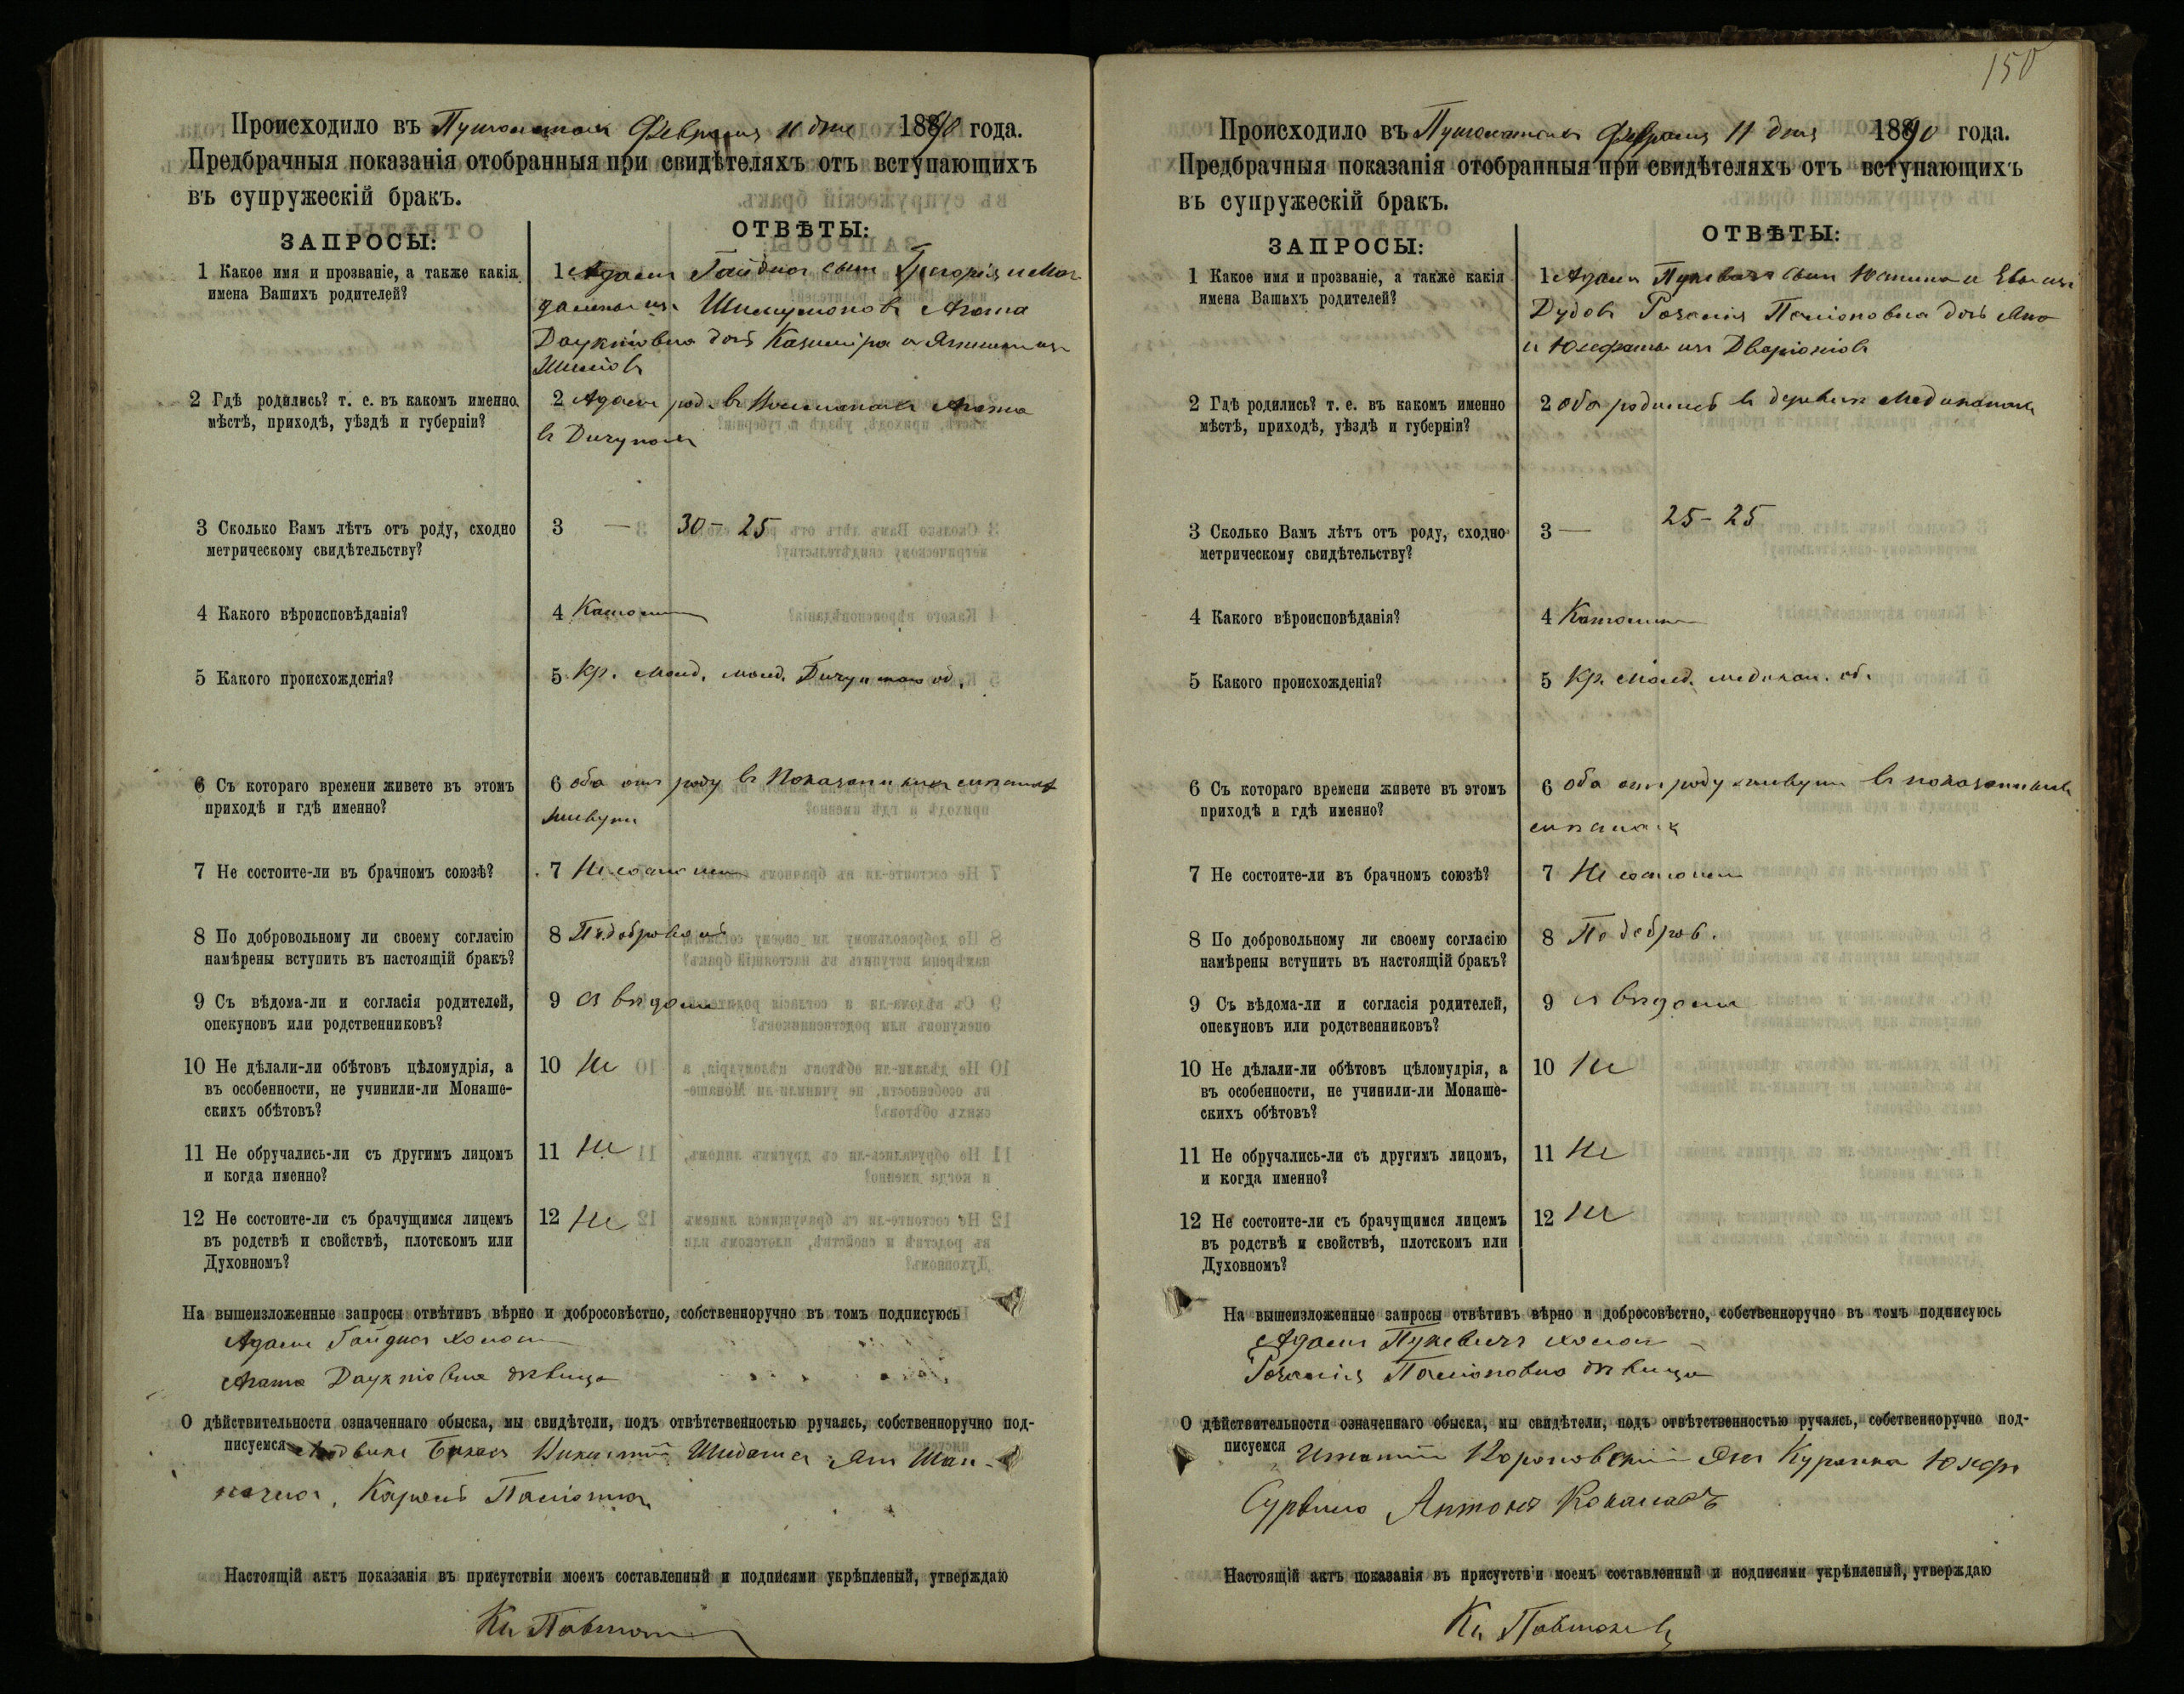 150
Происходило въ Февраля 11 дня 1890 года.
Предбрачныя показанія отобранныя при свидѣтеляхъ отъ вступающихъ
въ супружескій бракъ.
ЗАПРОСЫ:
ОТВѢТЫ:
1 Какое имя и прозваніе, а также какія
имена Вашихъ родителей?
1 Адамъ Гайдисъ сынъ Григорія и Маг-
далены изъ Агата
Даукшовна дочь Казиміра и
2 Гдѣ родились? т. е. въ какомъ именно
мѣстѣ, приходѣ, уѣздѣ и губерніи?
2 Адамъ род. въ Агата
въ
3 Сколько Вамъ лѣтъ отъ роду, сходно
метрическому свидѣтельству?
3 — 30 - 25
4 Какого вѣроисповѣданія?
4 Католик
5 Какого происхожденія?
5 Кр. об.
6 Съ котораго времени живете въ этомъ
приходѣ и гдѣ именно?
6 оба отъ роду въ показанныхъ мѣстахъ
живутъ
7 Не состоите-ли въ брачномъ союзѣ?
7 Не состоимъ
8 По добровольному ли своему согласію
намѣрены вступить въ настоящій бракъ?
8 По доброволь
9 Съ вѣдома-ли и согласія родителей,
опекуновъ или родственниковъ?
9 съ вѣдома
10 Не дѣлали-ли обѣтовъ цѣломудрія, а
въ особенности, не учинили-ли Монаше-
скихъ обѣтовъ?
10 Не
11 Не обручались-ли съ другимъ лицомъ
и когда именно?
11 Не
12 Не состоите-ли съ брачущимся лицемъ
въ родствѣ и свойствѣ, плотскомъ или
Духовномъ?
12 Не
На вышеизложенные запросы отвѣтивъ вѣрно и добросовѣстно, собственноручно въ томъ подписуюсь
Адамъ Гайдисъ холост
Агата Даукшовна дѣвица
О дѣйствительности означеннаго обыска, мы свидѣтели, подъ отвѣтственностью ручаясь, собственноручно под-
писуемся
Кароль
Настоящій актъ показанія въ присутствіи моемъ составленный и подписями укрѣпленый, утверждаю
Кс.
Происходило въ Февраля 11 дня 1890 года.
Предбрачныя показанія отобранныя при свидѣтеляхъ отъ вступающихъ
въ супружескій бракъ.
ЗАПРОСЫ:
ОТВѢТЫ:
1 Какое имя и прозваніе, а также какія
имена Вашихъ родителей?
1 Адамъ Пукевичъ сынъ Юстина и Евы изъ
Дудовъ Розалія дочь
и Юзефаты изъ
2 Гдѣ родились? т. е. въ какомъ именно
мѣстѣ, приходѣ, уѣздѣ и губерніи?
2 оба родились въ деревни
3 Сколько Вамъ лѣтъ отъ роду, сходно
метрическому свидѣтельству?
3 — 25 - 25
4 Какого вѣроисповѣданія?
4 Католик
5 Какого происхожденія?
5 Кр. об.
6 Съ котораго времени живете въ этомъ
приходѣ и гдѣ именно?
6 оба отъ роду живутъ въ показанныхъ
мѣстахъ
7 Не состоите-ли въ брачномъ союзѣ?
7 Не состоимъ
8 По добровольному ли своему согласію
намѣрены вступить въ настоящій бракъ?
8 По добров.
9 Съ вѣдома-ли и согласія родителей,
опекуновъ или родственниковъ?
9 съ вѣдома
10 Не дѣлали-ли обѣтовъ цѣломудрія, а
въ особенности, не учинили-ли Монаше-
скихъ обѣтовъ?
10 Не
11 Не обручались-ли съ другимъ лицомъ,
и когда именно?
11 Не
12 Не состоите-ли съ брачущимся лицемъ
въ родствѣ и свойствѣ, плотскомъ или
Духовномъ?
12 Не
На вышеизложенные запросы отвѣтивъ вѣрно и добросовѣстно, собственноручно въ томъ подписуюсь
Адамъ Пукевичъ холост
Розалія дѣвица
О дѣйствительности означеннаго обыска, мы свидѣтели, подъ отвѣтственностью ручаясь, собственноручно под-
писуемся
Антонъ
Настоящій актъ показанія въ присутствіи моемъ составленный и подписями укрѣпленый, утверждаю
Кс.